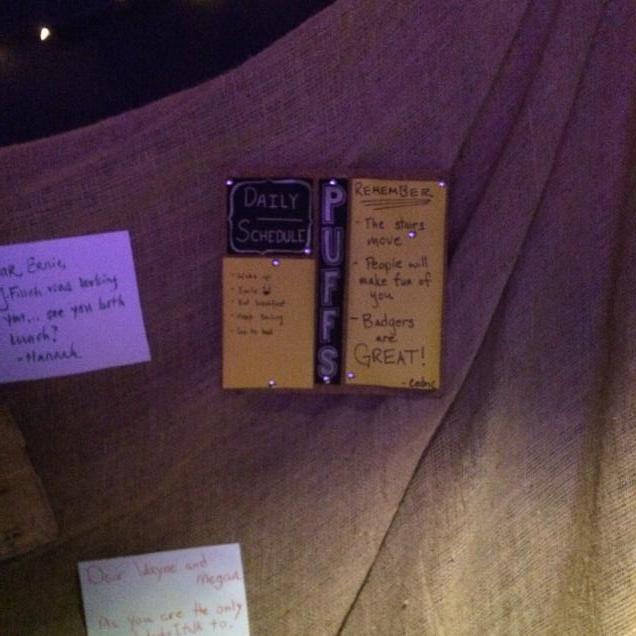 DAILY
SCHEDULE
- Wake up
- Smile
- Eat breakfast
- Keep smiling
- Go to bed
PUFFS
REMEMBER
- The stairs
move
- People will
make fun of
you
- Badgers
are
GREAT!
- Cedric
Ernie,
Filch was looking
you... see you both
lunch?
- Hannah
Dear Wayne and
Megan
As you are the only
talk to.